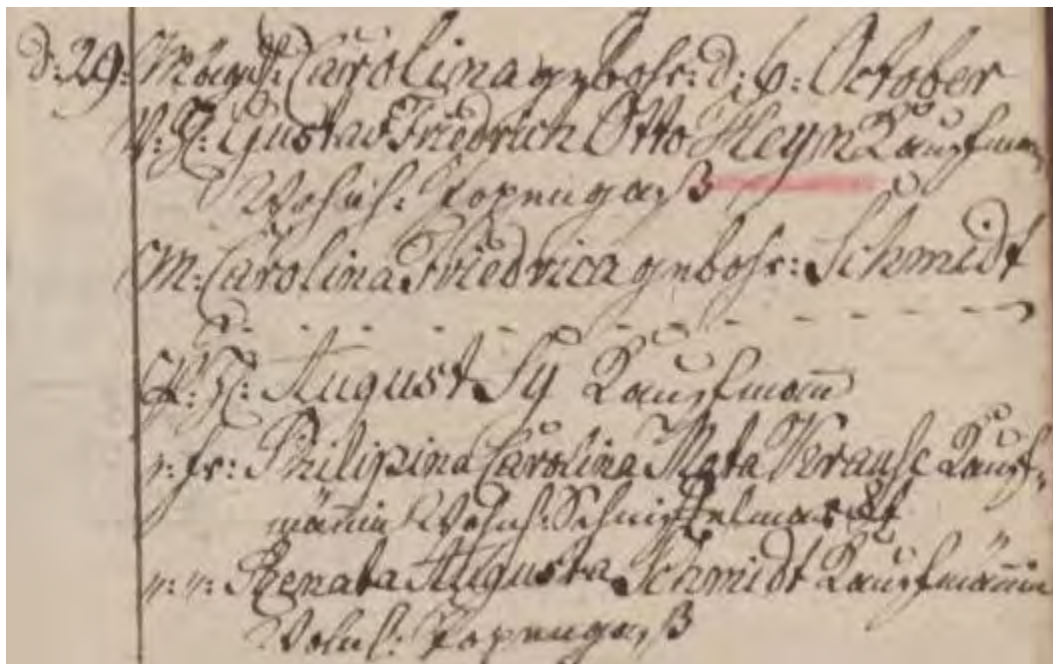 d: 29. Magd: Carolina gebohr: d: 6: October
V: H: Gustav Friedrich Otto Heyn Kaufman
Wohnh: Popengaß
M: Carolina Friedrica gebohr: Schmidt
P: H: August Sy Kaufmañ
": fr: Philipina Carolina Krause Kauf-
mäñin Wohnh:
": ": Renata Augusta Schmidt Kaufmäñin
Wohnh: Popengaß